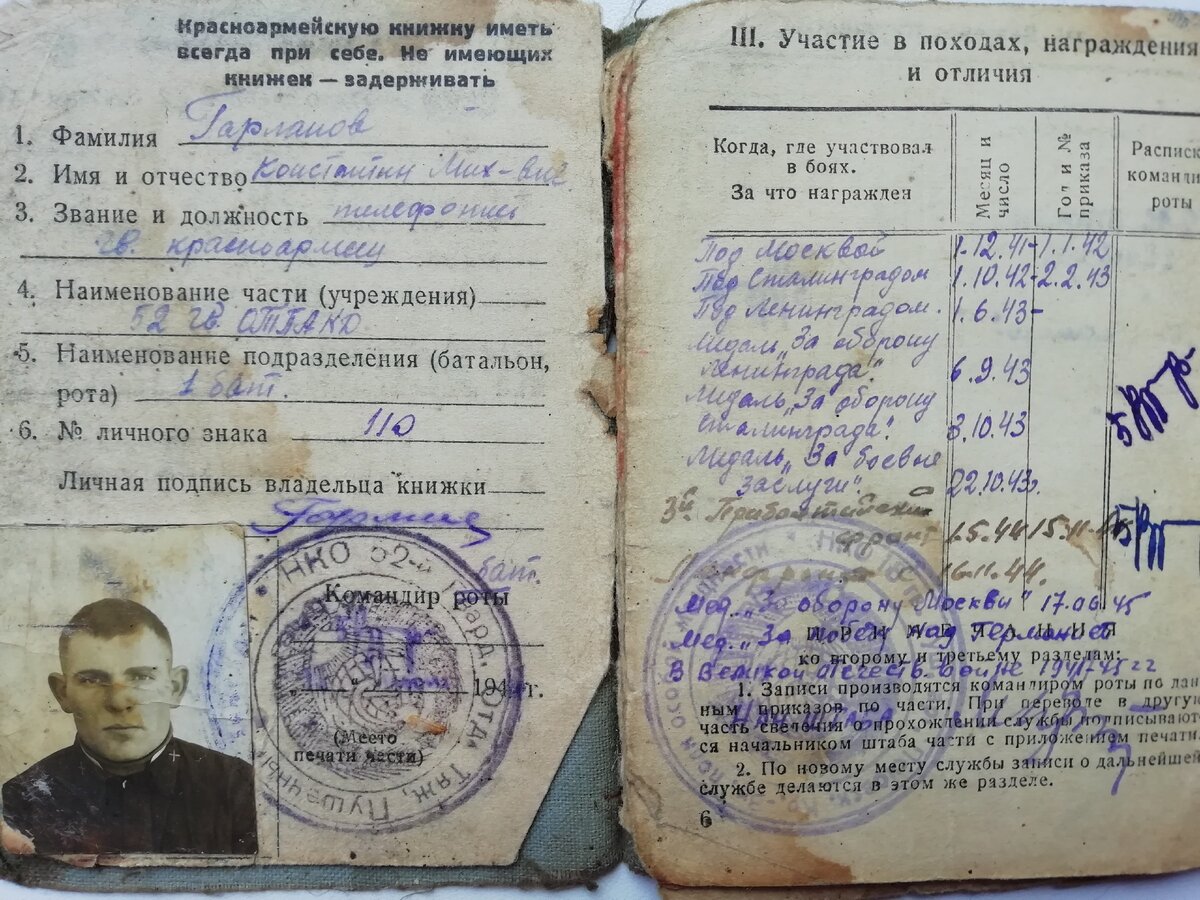 Красноармейскую книжку иметь
всегда при себе. Не имеющих
книжек — задерживать
1. Фамилия Гарланов
2. Имя и отчество Константин Мих-вич
3. Звание и должность телефонист
гв. красноармеец
4. Наименование части (учреждения)
52 гв. ОТПАКД
5. Наименование подразделения (батальон,
рота) 1 бат.
6. № личного знака 110
Личная подпись владельца книжки
бат.
Командир роты
194 г.
(Место
печати части)
НКО 52-й Гвард. Отд. Тяж. Пушечный
III. Участие в походах, награждения
и отличия
Когда, где участвовал
в боях.
За что награжден
Месяц и
число
Год и №
приказа
Расписк
команди
роты
Под Москвой 1.12.41-1.1.42
Под Сталинградом 1.10.42-2.2.43
Под Ленинградом. 1.6.43-
Медаль „За оборону
Ленинграда". 6.9.43
Медаль „За оборону
Сталинграда". 3.10.43
Медаль „За боевые
заслуги". 22.10.43.
3й Прибалтийский
фронт 1.5.44 15.11.44
16.11.44.
Мед. „За оборону Москвы" 17.06.45
Мед. „За победу над Германией
в Великой Отечеств. войне 1941-45 гг
ПРИМЕЧАНИЯ
ко второму и третьему разделам:
1. Записи производятся командиром роты по дан
ным приказов по части. При переводе в другую
часть сведения о прохождении службы подписывают
ся начальником штаба части с приложением печати.
2. По новому месту службы записи о дальнейшей
службе делаются в этом же разделе.
6